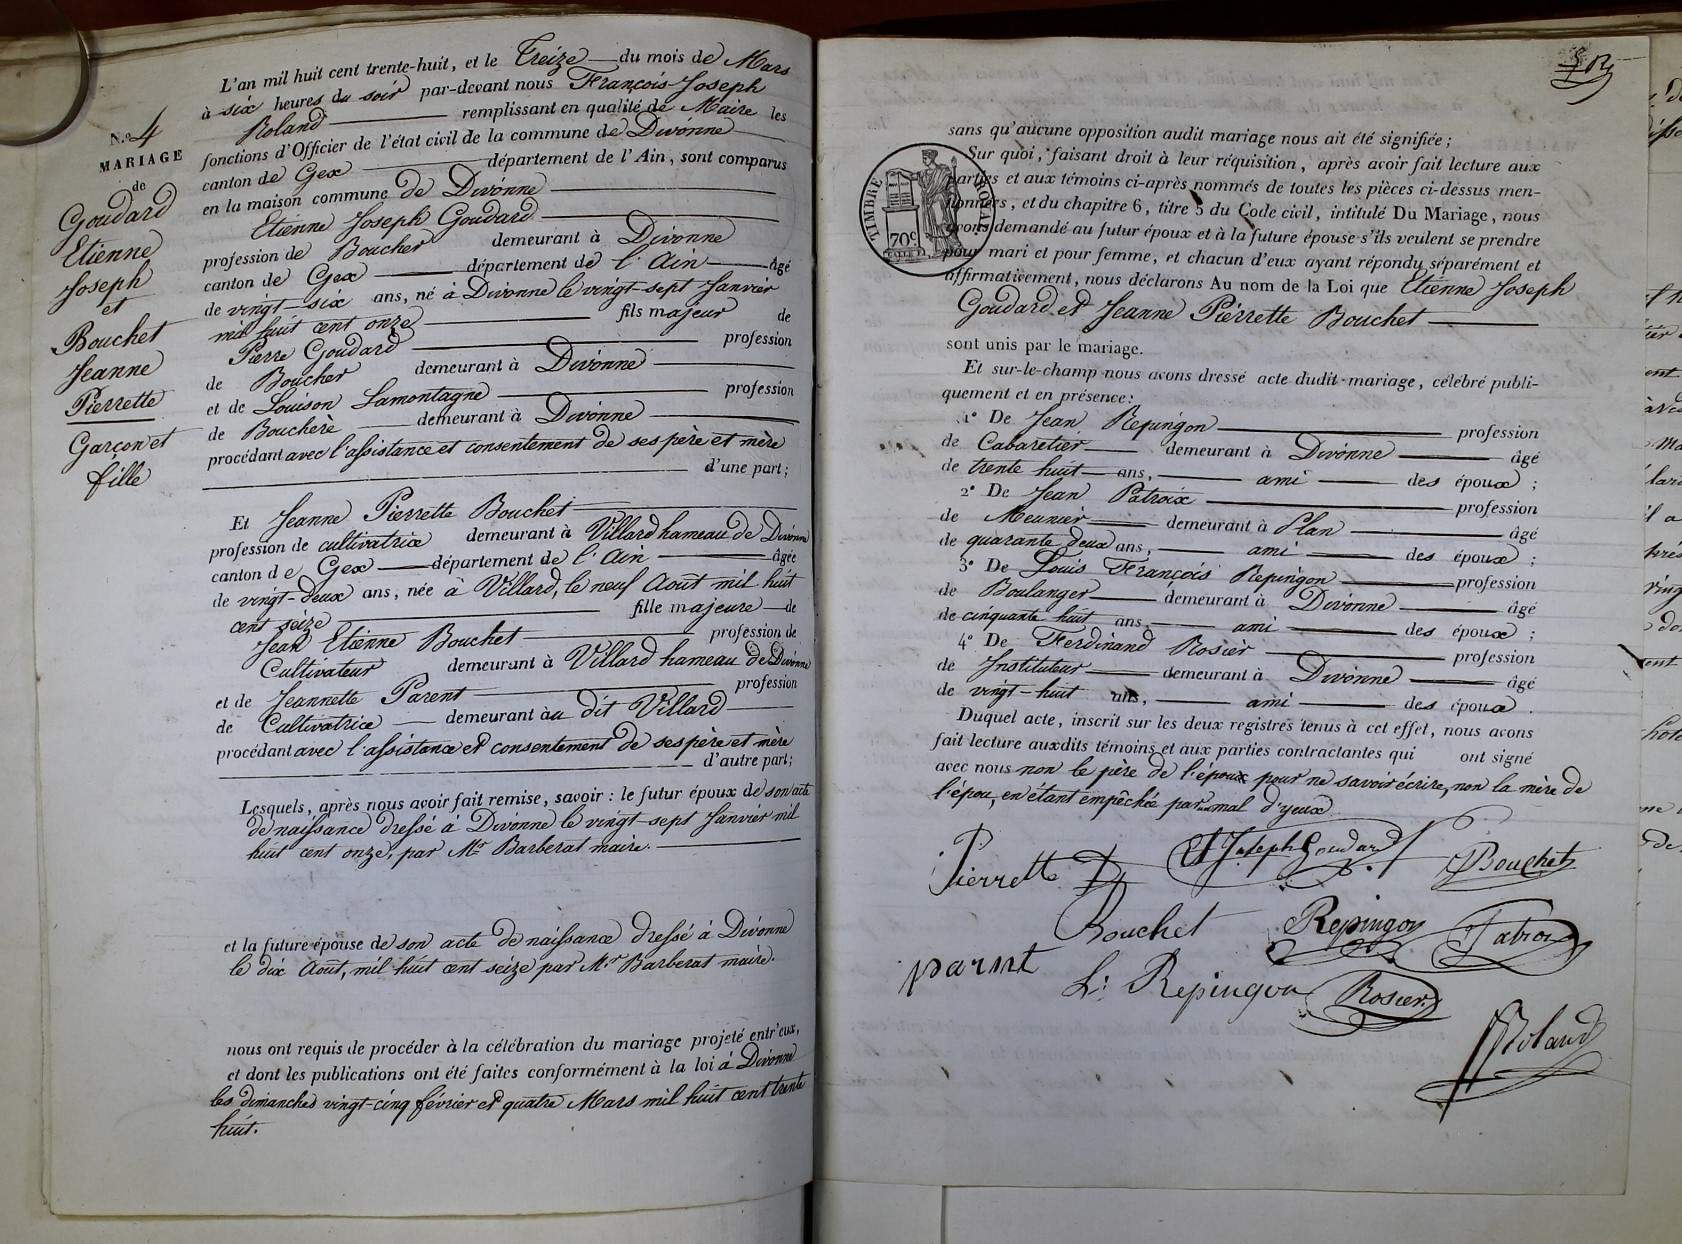 L'an mil huit cent trente-huit, et le Treize du mois de Mars
à six heures du soir par-devant nous François Joseph
Roland remplissant en qualité de Maire les
fonctions d'Officier de l'état civil de la commune de Divonne
canton de Gex département de l'Ain, sont comparus
en la maison commune de Divonne
Etienne Joseph Goudard
profession de Boucher demeurant à Divonne
canton de Gex département de l'Ain âgé
de vingt-six ans, né à Divonne le vingt-sept Janvier
mil huit cent onze fils majeur de
Pierre Goudard profession
de Boucher demeurant à Divonne
et de Louison Lamontagne profession
de Bouchère demeurant à Divonne
procédant avec l'assistance et consentement de ses père et mère
d'une part;
N.o 4
MARIAGE
de
Goudard
Etienne
Joseph
et
Bouchet
Jeanne
Pierrette
Garçon et
fille
Et Jeanne Pierrette Bouchet
profession de cultivatrice demeurant à Villard hameau de Divonne
canton de Gex département de l'Ain âgée
de vingt-deux ans, née à Villard, le neuf Août mil huit
cent seize fille majeure de
Jean Etienne Bouchet profession de
Cultivateur demeurant à Villard hameau de Divonne
et de Jeannette Parent profession
de Cultivatrice demeurant àu dit Villard
procédant avec l'assistance et consentement de ses père et mère
d'autre part;
Lesquels, après nous avoir fait remise, savoir : le futur époux de son acte
de naissance dressé à Divonne le vingt-sept Janvier mil
huit cent onze, par Mr Barberat maire.
et la future épouse de son acte de naissance dressé à Divonne
le dix Août, mil huit cent seize par Mr Barberat maire.
nous ont requis de procéder à la célébration du mariage projeté entr'eux,
et dont les publications ont été faites conformément à la loi à Divonne
les dimanches vingt-cinq février et quatre Mars mil huit cent trente
huit.
sans qu'aucune opposition audit mariage nous ait été signifiée;
Sur quoi, faisant droit à leur réquisition, après avoir fait lecture aux
parties et aux témoins ci-après nommés de toutes les pièces ci-dessus men-
tionnées, et du chapitre 6, titre 5 du Code civil, intitulé Du Mariage, nous
avons demandé au futur époux et à la future épouse s'ils veulent se prendre
pour mari et pour femme, et chacun d'eux ayant répondu séparément et
affirmativement, nous déclarons Au nom de la Loi que Etienne Joseph
Goudard et Jeanne Pierrette Bouchet
sont unis par le mariage.
TIMBRE ROYAL
70c
Et sur-le-champ nous avons dressé acte dudit mariage, célébré publi-
quement et en présence:
1° De Jean Repingon profession
de Cabaretier demeurant à Divonne âgé
de trente huit ans, ami des époux ;
2° De Jean Patroix profession
de Meunier demeurant à Plan âgé
de quarante deux ans, ami des époux ;
3° De Louis François Repingon profession
de Boulanger demeurant à Divonne âgé
de cinquante huit ans ami des époux ;
4° De Ferdinand Rosier profession
de Instituteur demeurant à Divonne âgé
de vingt-huit ans, ami des époux .
Duquel acte, inscrit sur les deux registres tenus à cet effet, nous avons
fait lecture auxdits témoins et aux parties contractantes qui ont signé
avec nous non le père de l'époux pour ne savoir écrire, non la mère de
l'épou, en étant empêchée par un mal d'yeux
Pierrette
Et Joseph Goudard
Bouchet
Bouchet
Repingon
Patroix
parnt
L: Repingon
Rosier
Roland